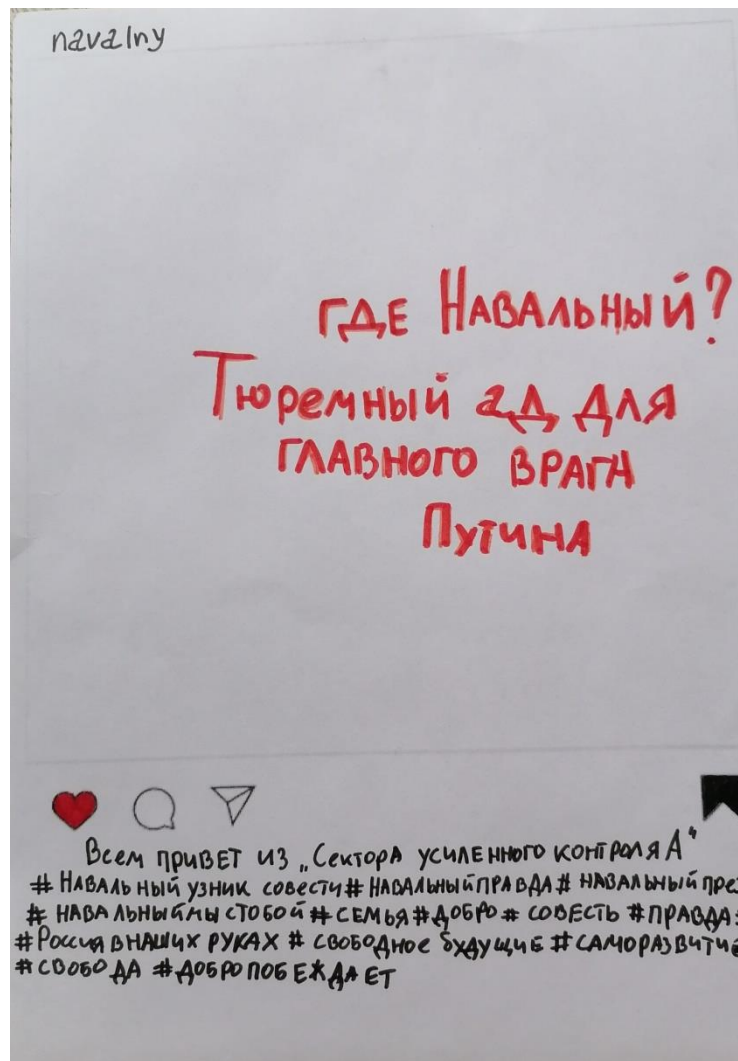 navalny
где Навальный?
Тюремный ад для
главного врага
Путина
Всем привет из „Сектора усиленного контроля А“
#Навальный узник совести#НАВАЛЬНЫЙПРАВДА# НАВАЛЬНЫЙпре
# НАВАЛЬНЫЙмы стобой#СЕМЬЯ#ДОБРО# СОВЕСТЬ #ПРАВДА
#Россия внаших руках # свободное будущие #САМОРАЗВИТИЕ
#СВОБОДА #ДОБРОПОБЕЖДАЕТ